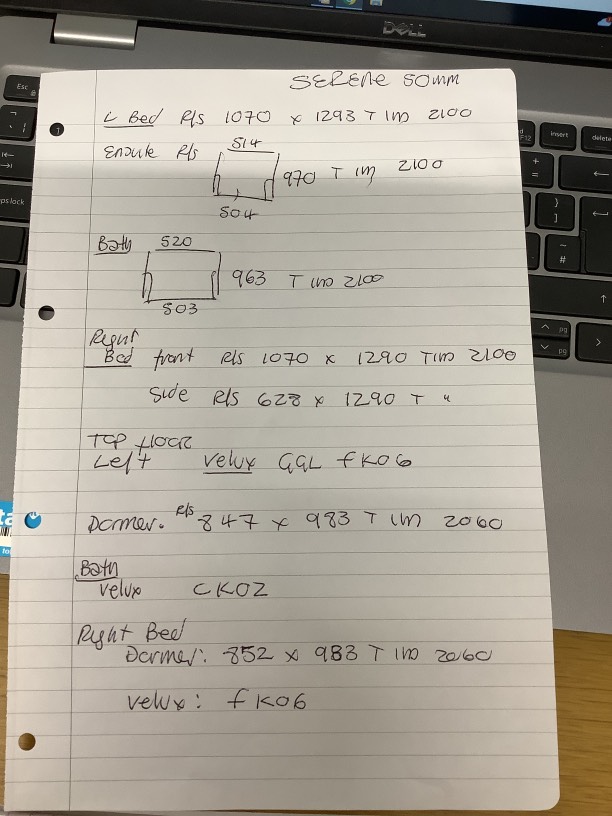 DELL
SERENE 50mm
L Bed R/s 1070 x 1293 T IM 2100
Ensuite R/s 514
970 T IM 2100
504
Bath 520
963 T IM 2100
503
Right
Bed front R/s 1070 x 1290 T IM 2100
Side R/s 628 x 1290 T "
TOP FLOOR
Left Velux GGL FK06
Dormer. R/s 847 x 983 T IM 2060
Bath
Velux CK02
Right Bed
Dormer: 852 x 983 T IM 2060
Velux: FK06
Esc
insert
delete
F12
ps lock
pg
pg